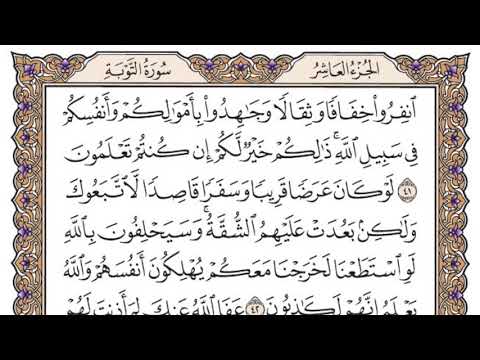 الجزء العاشر
سورة التوبة
ٱنفِرُوا۟ خِفَافًا وَثِقَالًا وَجَـٰهِدُوا۟ بِأَمْوَٰلِكُمْ وَأَنفُسِكُمْ
فِى سَبِيلِ ٱللَّهِ ۚ ذَٰلِكُمْ خَيْرٌ لَّكُمْ إِن كُنتُمْ تَعْلَمُونَ
٤١ لَوْ كَانَ عَرَضًا قَرِيبًا وَسَفَرًا قَاصِدًا لَّٱتَّبَعُوكَ
وَلَـٰكِنۢ بَعُدَتْ عَلَيْهِمُ ٱلشُّقَّةُ ۚ وَسَيَحْلِفُونَ بِٱللَّهِ
لَوِ ٱسْتَطَعْنَا لَخَرَجْنَا مَعَكُمْ يُهْلِكُونَ أَنفُسَهُمْ وَٱللَّهُ
يَعْلَمُ إِنَّهُمْ لَكَـٰذِبُونَ ٤٢ عَفَا ٱللَّهُ عَنكَ لِمَ أَذِنتَ لَهُمْ